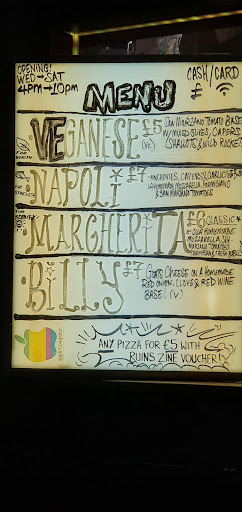 OPENING!
WED→SAT
4PM→10PM
CASH/CARD
£
MENU
VEGANESE £5
(VE)
SAN MARZANO TOMATO BASE
W/ MIXED OLIVES, CAPERS,
SHALLOTS & WILD ROCKET
NAPOLI £7
ANCHOVIES, CAPERS &
HOMEMADE MOZZARELLA, PARMIGIANO
& SAN MARZANO TOMATOES
MARGHERITA £6
CLASSICA
OUR HOMEMADE
MOZZARELLA, SAN
MARZANO TOMATO,
BILLY £7
GOATS CHEESE ON A HOMEMADE
RED ONION, CLOVE & RED WINE
BASE! (V)
Apple Computer
ANY PIZZA FOR £5 WITH
RUINS ZINE VOUCHER!